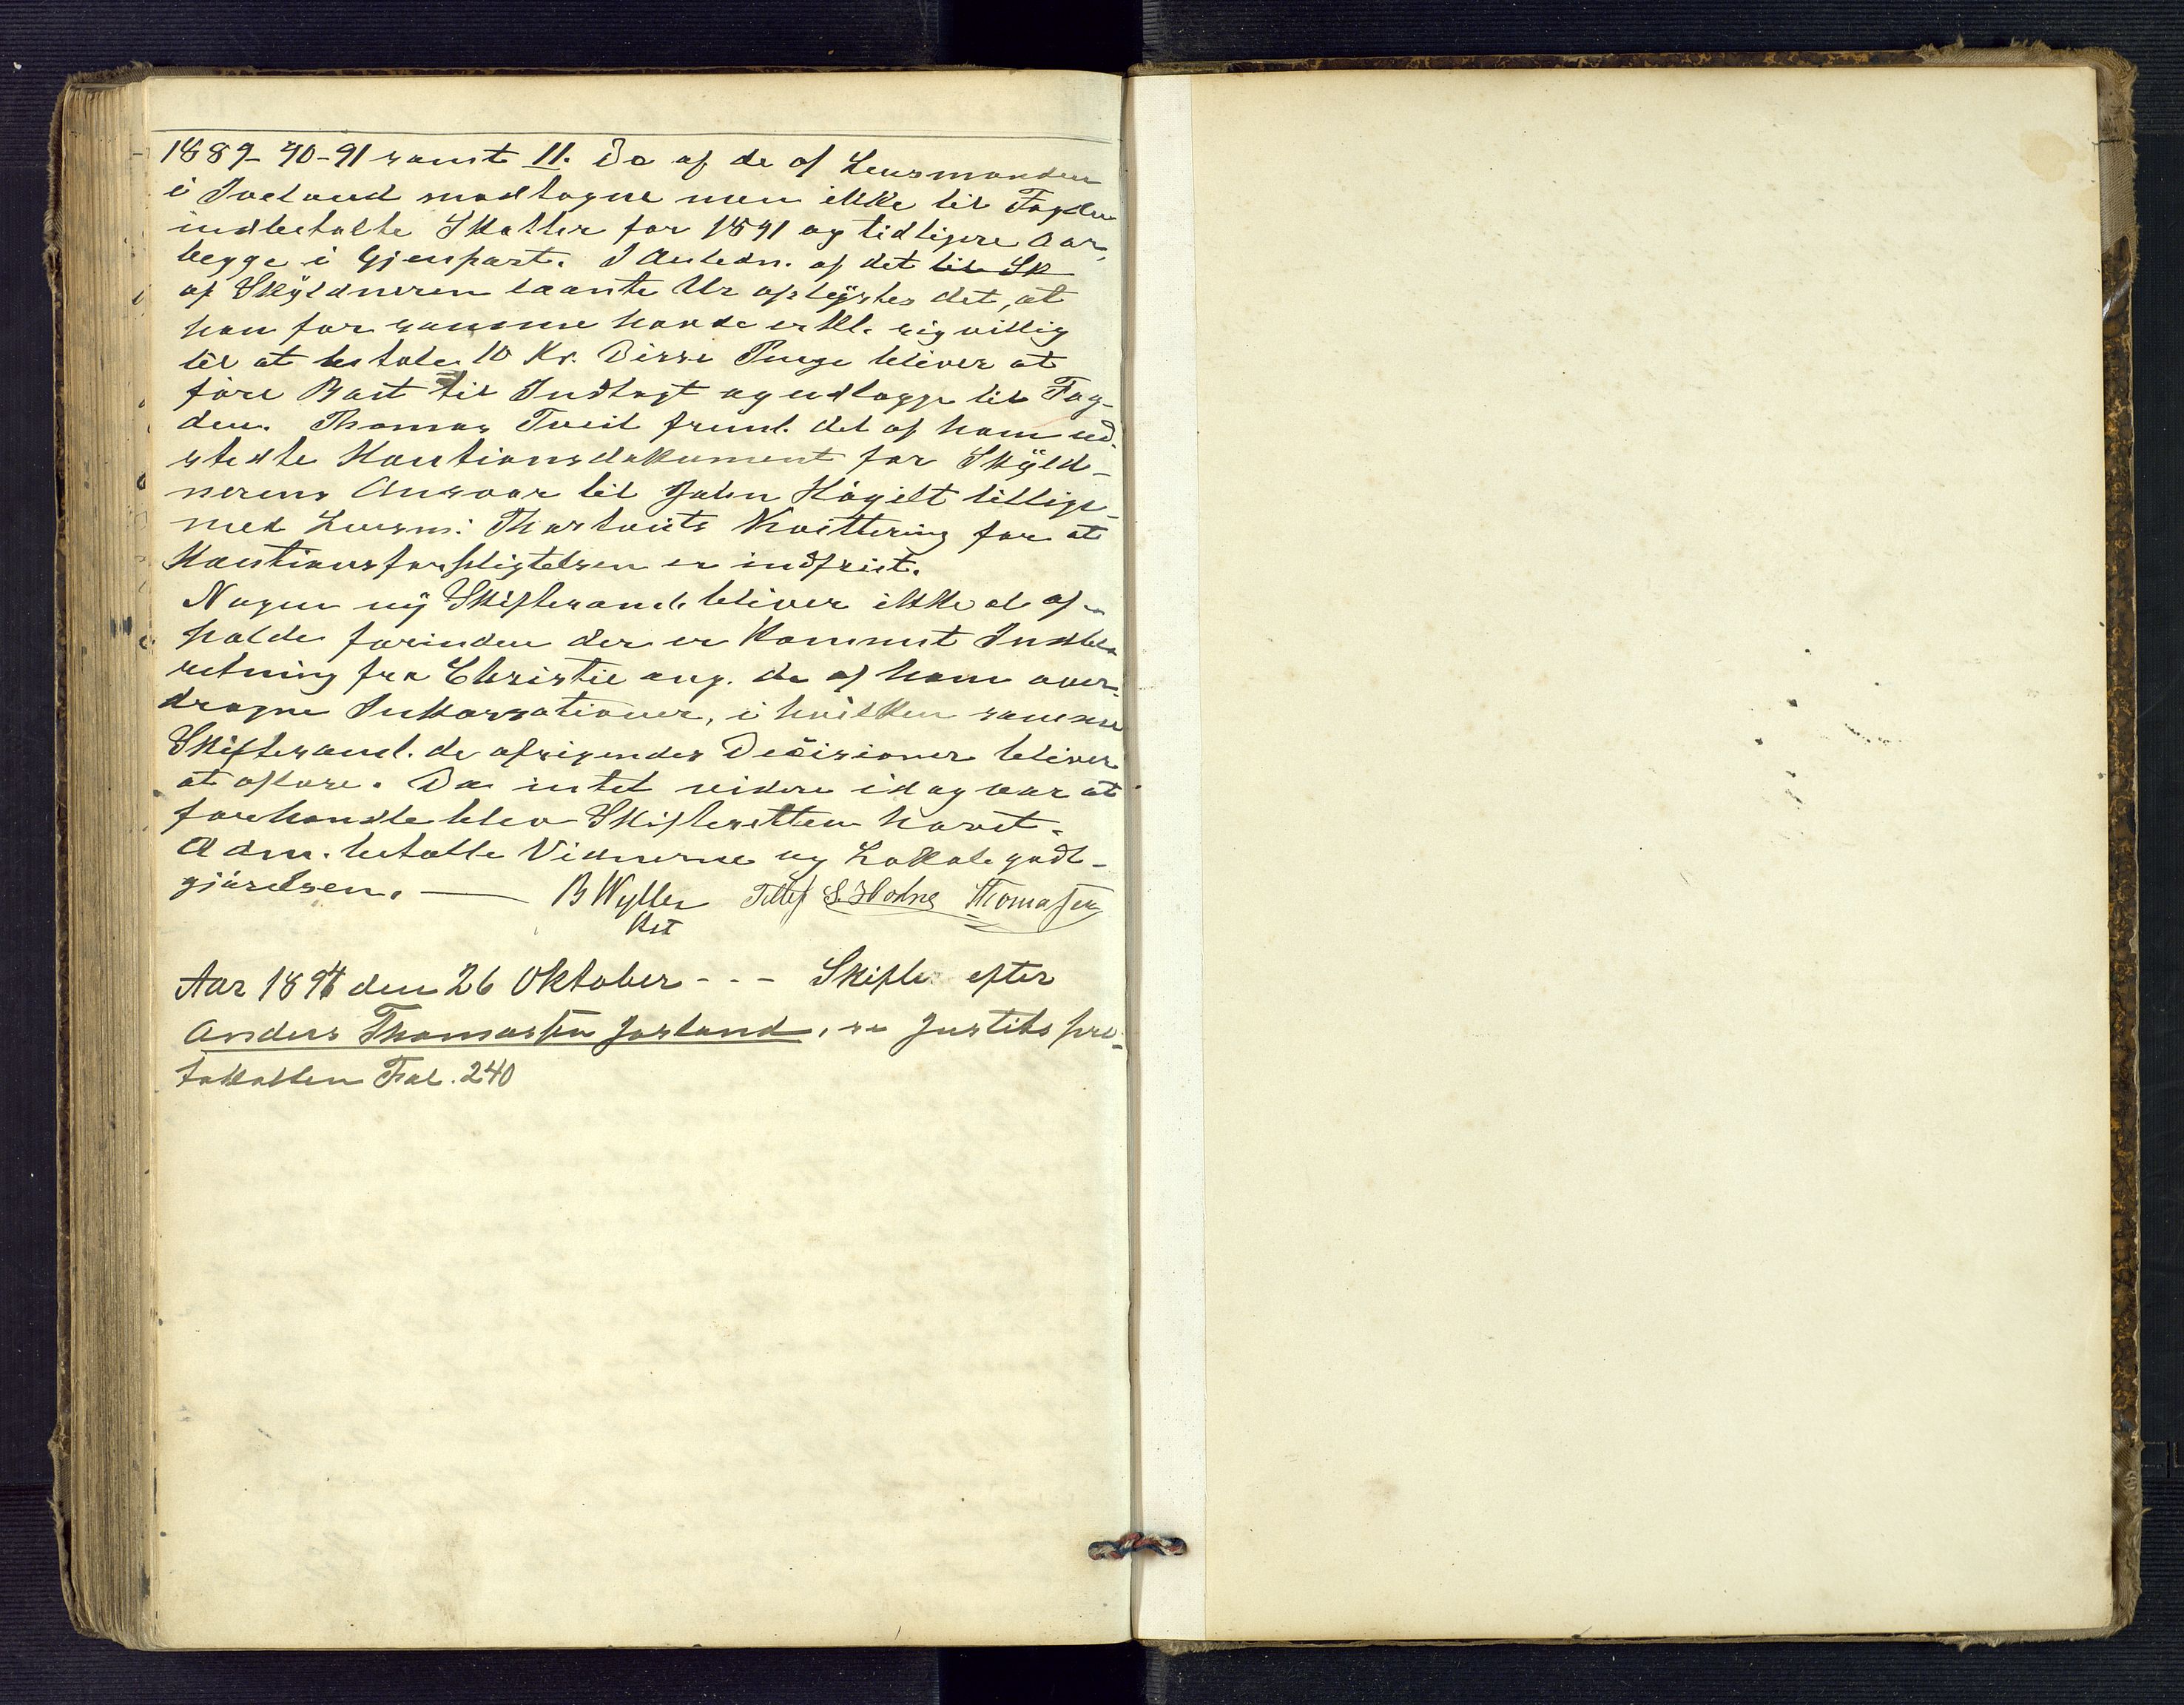 1889-90-91 samt 11. Do af de af Lensmanden
i Iveland modtagne men ikke til Fogden
indbetalte Skatter for 1891 og tidligere Aar,
begge i Gjenpart. I Anledn. af det til Sk
af Skyldneren laante Ur oplystes det, at
han for samme havde erkl. sig villig
til at betale 10 Kr. Disse Penge bliver at
føre Boet til Indtægt og udlægge til Fog-
den. Thomas Tveit freml. det af ham ud-
stedte Kautionsdokument for Skyld-
nerens Ansvar til John Høgilt tillige-
med Lensm: Thortveits Kvittering for at
Kautionsforpligtelsen er indfriet.
Nogen ny Skiftesaml. bliver ikke at af-
holde forinden der er kommet Indbe-
retning fra Christie ang. de af ham over-
dragne Inkassationer, i hvilken samme
Skiftesaml. de afsigendes Decisioner bliver
at afsige. Da intet videre idag var at
forehandle blev Skifteretten hævet.
Adm. betalte Vidnerne og Lokalegodt-
gjørelsen. — B Wyller Tellef S. Hodne Thomassen
Kst
Aar 1894 den 26 Oktober - - - Skifte efter
Anders Thomassen Jorland, se Justitspro-
tokollen Fol. 240